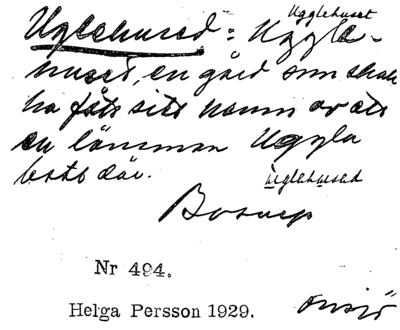 Ugglehuset
Uglehused = Uggle-
huset, en gård som skall
ha fått sitt namn av att
en länsman Uggla
bott där.
uglehused
Bosarp
Nr 494.
Helga Persson 1929. Onsjö